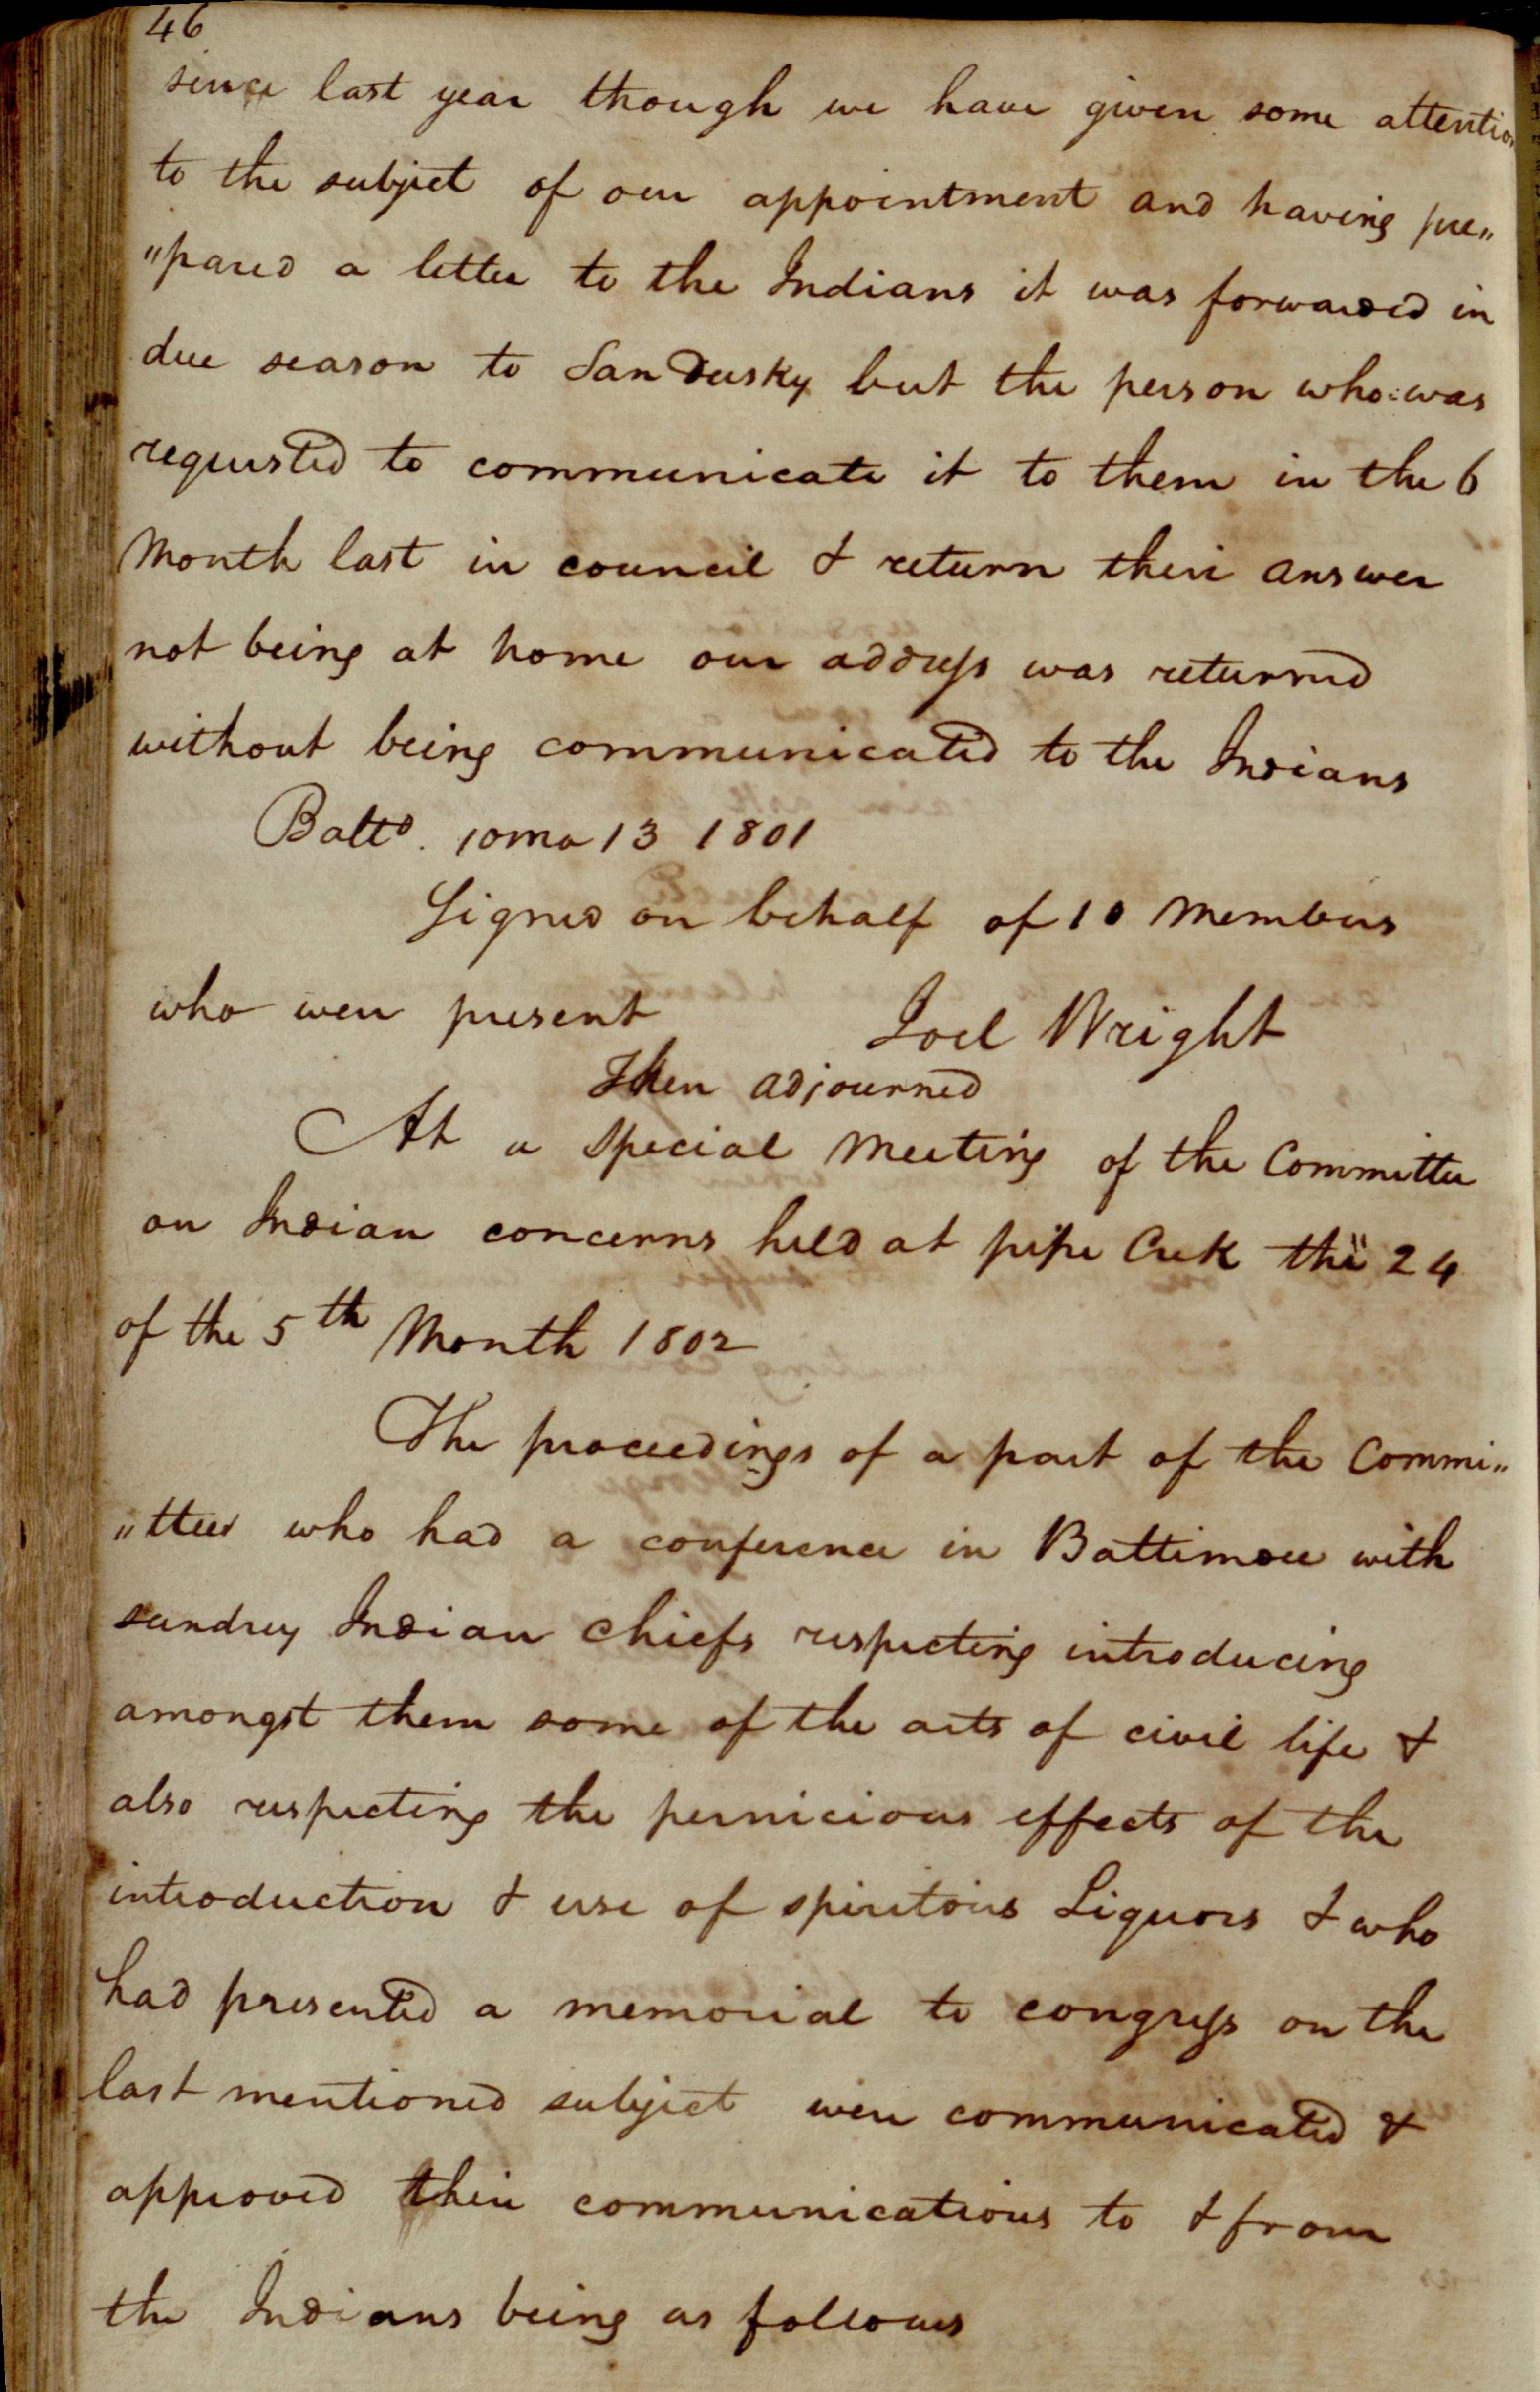 46
since last year though we have given some attention
to the subject of our appointment and having pre„
„pared a letter to the Indians it was forwarded in
due season to Sandusky but the person who was
requested to communicate it to them in the 6
Month last in council & return their answer
not being at home our address was returned
without being communicated to the Indians
Balto. 10mo 13 1801
Signed on behalf of 10 Members
who were present Joel Wright
Then adjourned
At a special Meeting of the Committee
on Indian concerns held at pipe Creek the 24
of the 5th Month 1802
The proceedings of a part of the Commi„
„ttee who had a conference in Baltimore with
sundrey Indian chiefs respecting introducing
amongst them some of the arts of civil life &
also respecting the pernicious effects of the
introduction & use of spiritous Liquors & who
had presented a memorial to congress on the
last mentioned subject were communicated &
approved their communications to & from
the Indians being as follows